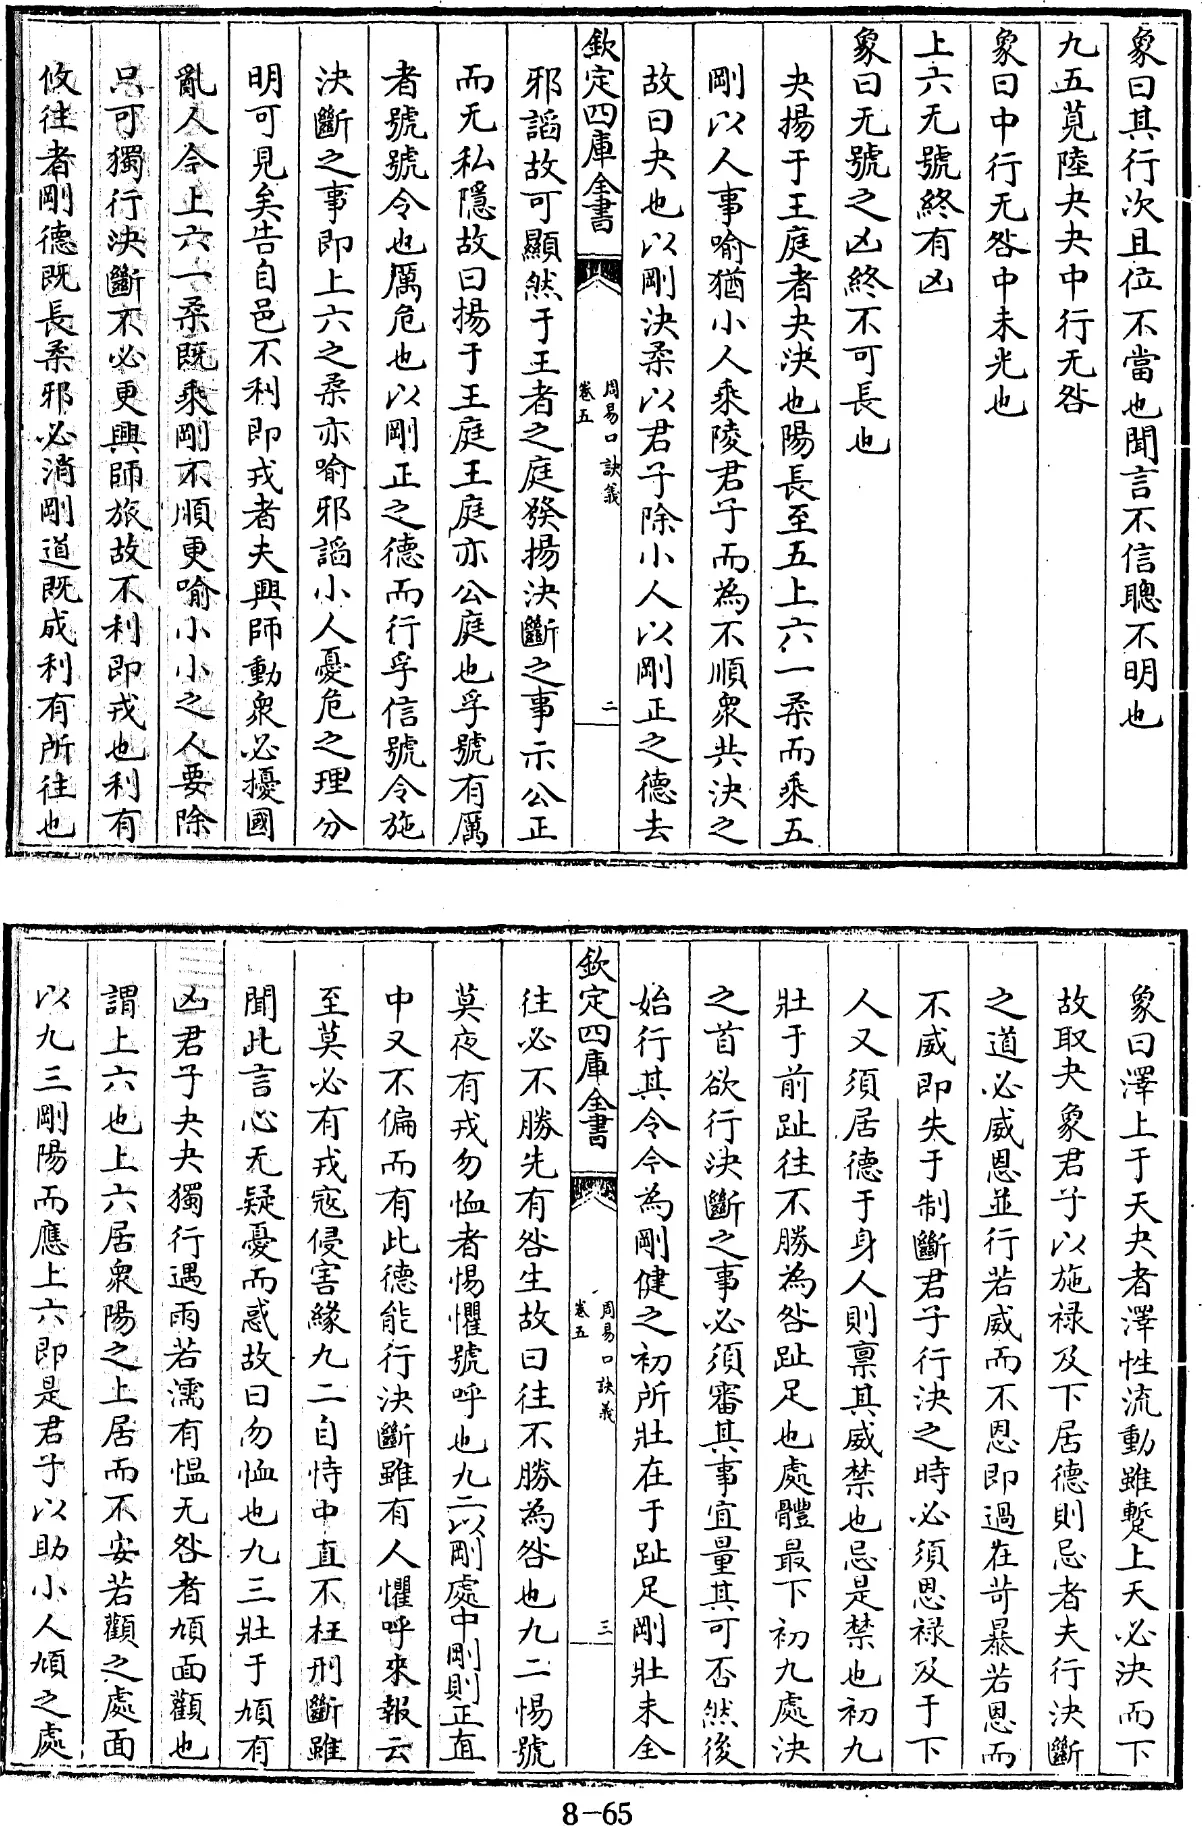 象曰其行次且位不當也聞言不信聰不明也
九五莧陸夬夬中行无咎
象曰中行无咎中未光也
上六无號終有凶
象曰无號之凶終不可長也
夬揚于王庭者夬決也陽長至五上六一柔而乘五
剛以人事喻猶小人乘陵君子而為不順衆共決之
故曰夬也以剛決柔以君子除小人以剛正之德去
欽定四庫全書
周易口訣義
卷五
二
邪謟故可顯然于王者之庭發揚決斷之事示公正
而无私隱故曰揚于王庭王庭亦公庭也孚號有厲
者號號令也厲危也以剛正之德而行孚信號令施
決斷之事即上六之柔亦喻邪謟小人憂危之理分
明可見矣告自邑不利即戎者夫興師動衆必擾國
亂人今上六一柔既乘剛不順更喻小小之人要除
只可獨行決斷不必更興師旅故不利即戎也利有
攸往者剛德既長柔邪必消剛道既成利有所往也
象曰澤上于天夬者澤性流動雖蹔上天必決而下
故取夬象君子以施祿及下居德則忌者夫行決斷
之道必威恩並行若威而不恩即過在苛暴若恩而
不威即失于制斷君子行決之時必須恩祿及于下
人又須居德于身人則禀其威禁也忌是禁也初九
壯于前趾往不勝為咎趾足也處體最下初九處決
之首欲行決斷之事必須審其事宜量其可否然後
始行其令今為剛健之初所壯在于趾足剛壯未全
欽定四庫全書
周易口訣義
卷五
三
往必不勝先有咎生故曰往不勝為咎也九二惕號
莫夜有戎勿恤者惕懼號呼也九二以剛處中剛則正直
中又不偏而有此德能行決斷雖有人懼呼來報云
至莫必有戎寇侵害緣九二自恃中直不枉刑斷雖
聞此言心无疑憂而惑故曰勿恤也九三壯于頄有
凶君子夬夬獨行遇雨若濡有愠无咎者頄面顴也
謂上六也上六居衆陽之上居而不安若顴之處面
以九三剛陽而應上六即是君子以助小人頄之處
8-65